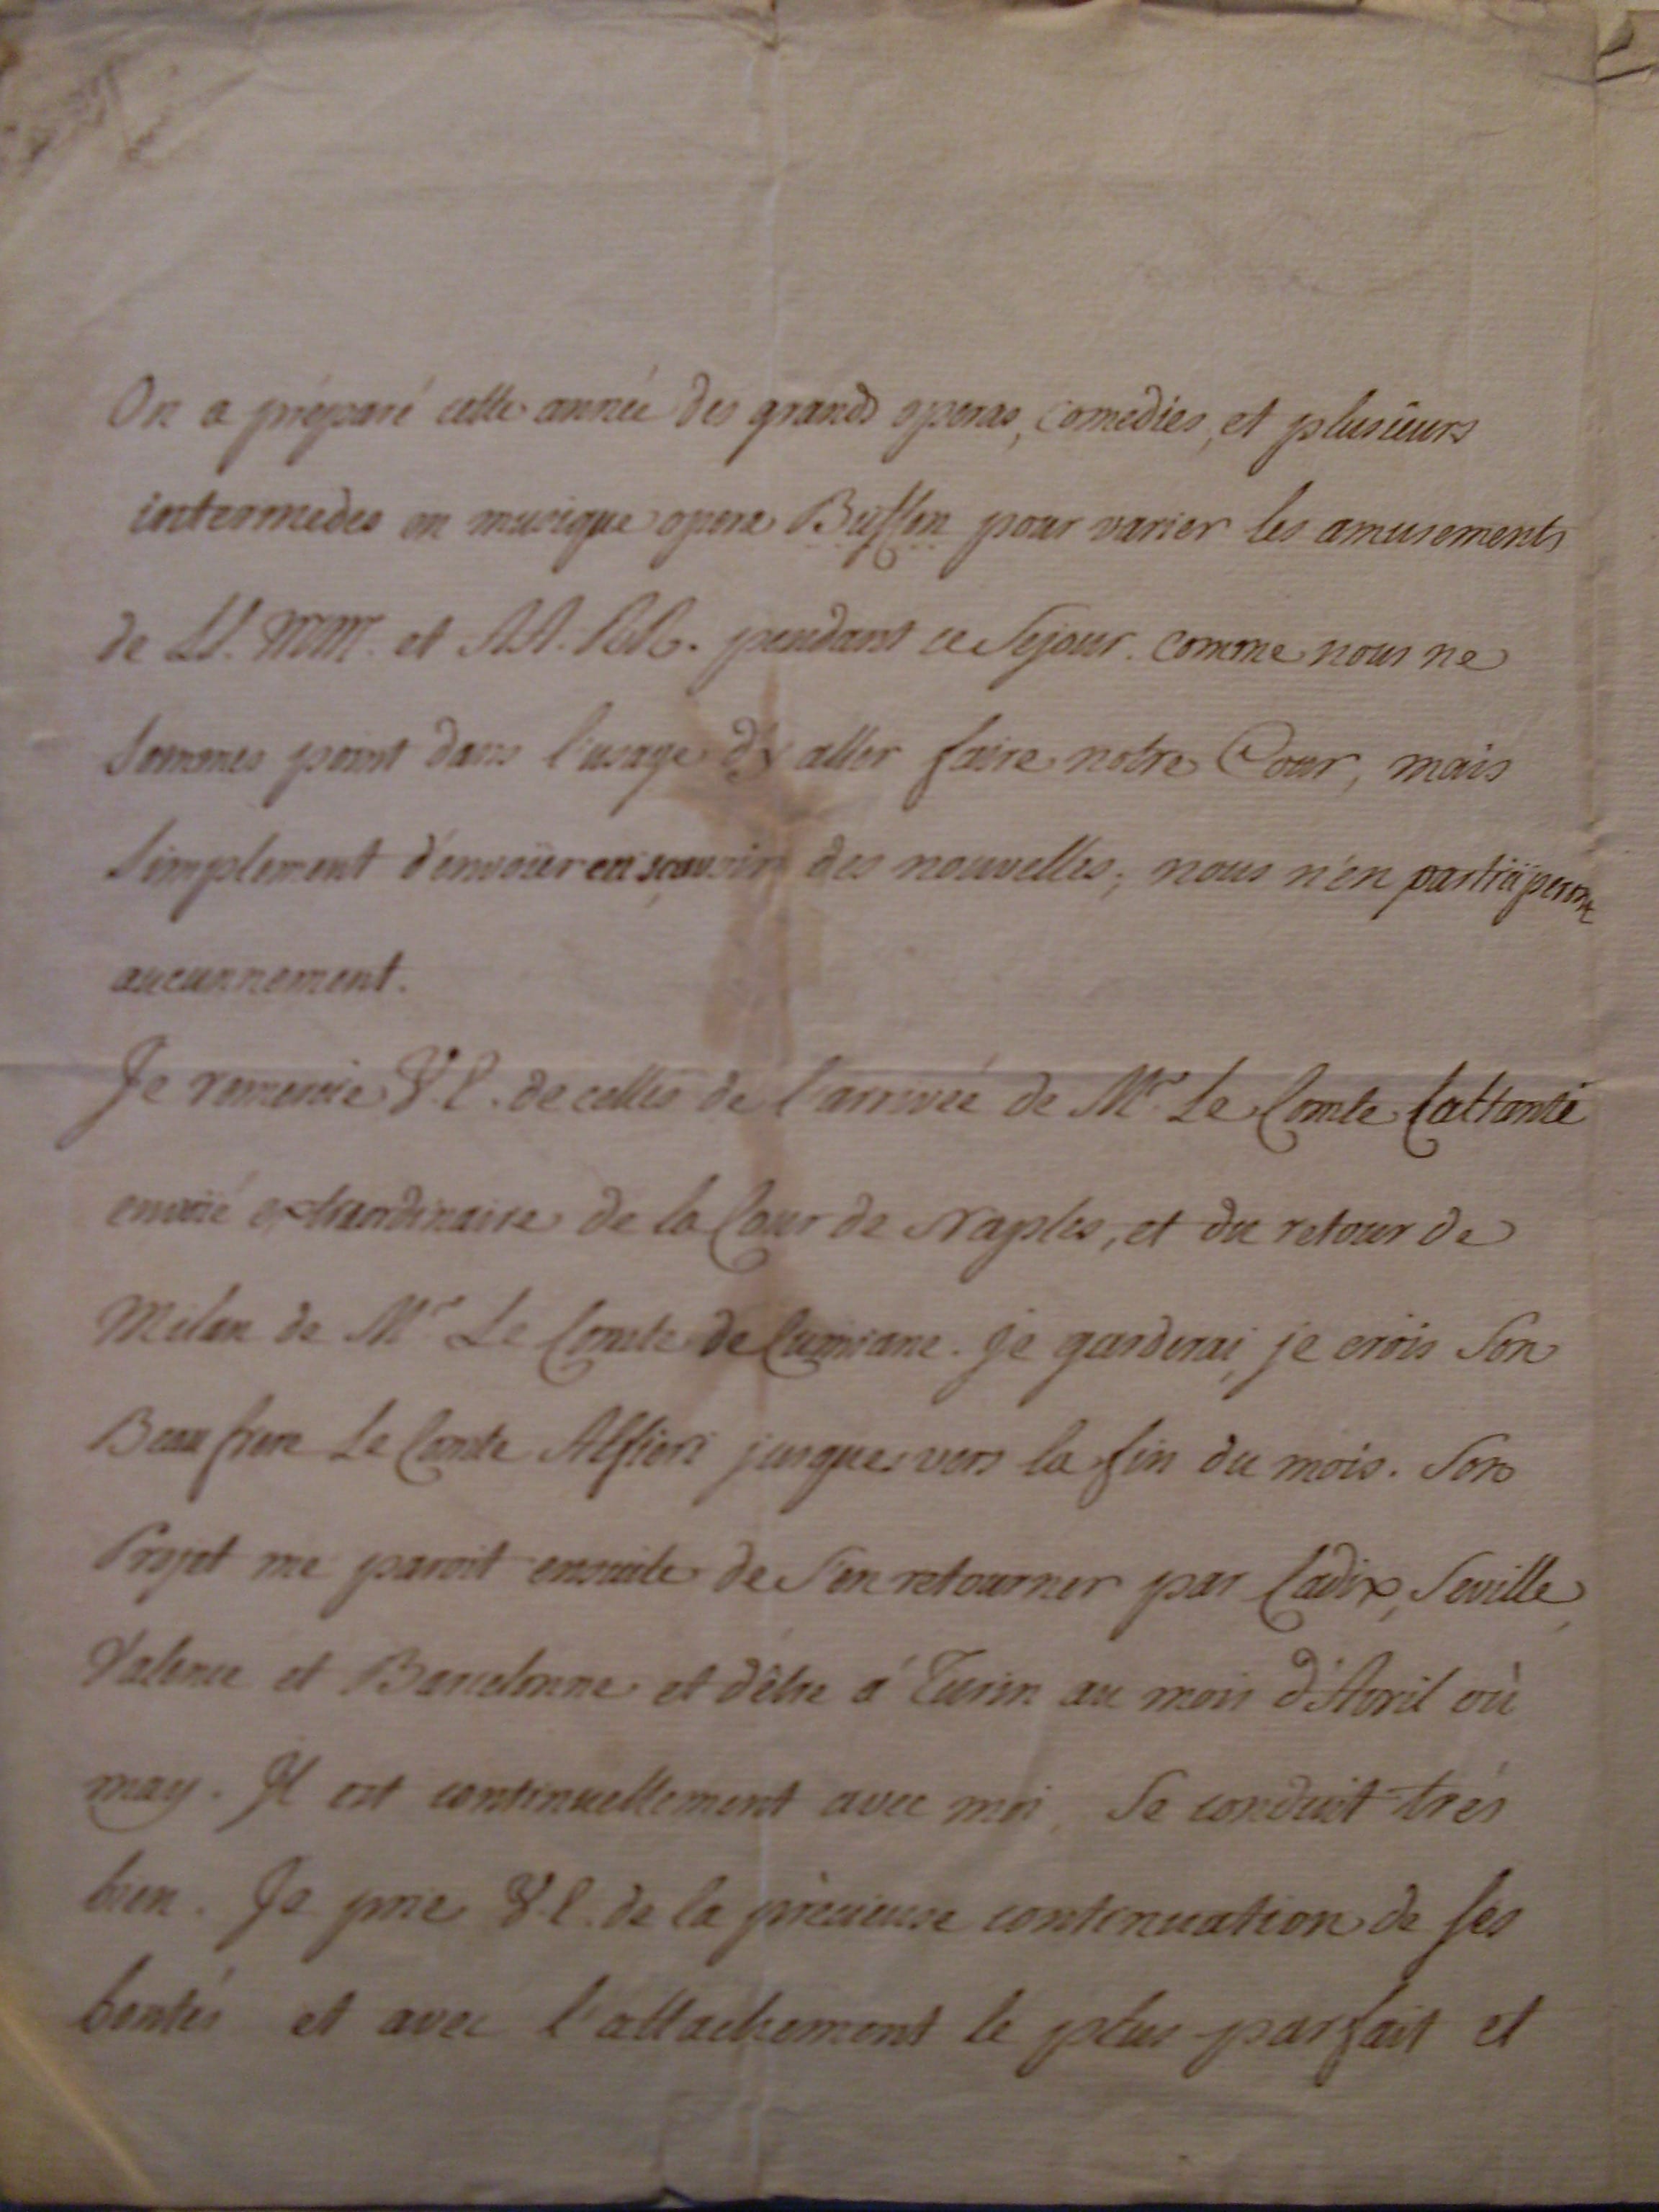 On a préparé cette année des grands operas, comedies, et plusieurs
intermedes en musique opera Buffon pour varier les amusements
de LL. MM. et AA. RR. pendant ce Sejour. comme nous ne
Sommes point dans l'usage d'y aller faire notre Cour, mais
Simplement d'envoïer en sçavoir des nouvelles; nous n'en participerons
aucunnement.
Je remercie V.E. de celles de l'arrivée de Mr. Le Comte Cattanti
envoïé extraordinaire de la Cour de Naples, et du retour de
Milan de Mr Le Comte de Cumiane. je garderai, je crois Son
Beaufrere Le Comte Alfieri jusques vers la fin du mois. Son
Projet me paroit ensuite de S'en retourner par Cadix, Seville,
Valence et Barcelonne et d'être á Turin au mois d'Avril où
may. Il est continuellement avec moi, Se conduit trés
bien. Je prie V.E. de la précieuse continuation de Ses
bontés et avec l'attachement le plus parfait et